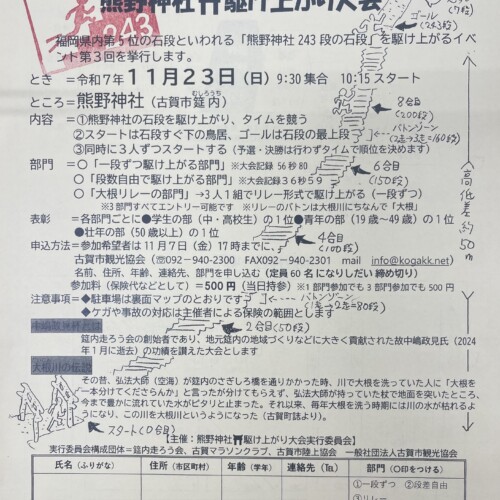 熊野神社⛩駆け上がり大会
243
ゴール
(243段)
福岡県内第5位の石段といわれる「熊野神社243段の石段」を駆け上がるイベ
ント第3回を挙行します。
とき =令和7年11月23日(日) 9:30集合 10:15スタート
ところ=熊野神社(古賀市筵内)
むしろうち
8合目
(200段)
内容 =①熊野神社の石段を駆け上がり、タイムを競う
②スタートは石段すぐ下の鳥居、ゴールは石段の最上段
バトンゾーン
③同時に3人ずつスタートする(予選・決勝は行わずタイムで順位を決めます)
部門 =○「一段ずつ駆け上がる部門」※大会記録56秒80
6合目
(150段)
○「段数自由で駆け上がる部門」※大会記録36秒59
○「大根リレーの部門」→3人1組でリレー形式で駆け上がる(一段ずつ)
※3部門すべてエントリー可能です ※リレーのバトンは大根川にちなんで「大根」
高低差約50m
表彰 =各部門ごとに●学生の部(中・高校生)の1位●青年の部(19歳~49歳)の1位
●壮年の部(50歳以上)の1位
4合目
(100段)
申込方法=参加希望者は11月7日(金)17時までに、
古賀市観光協会(☏092-940-2300 FAX092-940-2301 mail info@kogakk.net)
名前、住所、年齢、連絡先、部門を申し込む(定員60名になりしだい締め切り)
参加料(保険代などとして)=500円(当日持参)※1部門参加でも3部門参加でも500円
注意事項=◆駐車場は裏面マップのとおりです
バトンゾーン
◆ケガや事故の対応は主催者による保険の範囲とします
2合目(50段)
筵内走ろう会の創始者であり、地元筵内の地域づくりなどに大きく貢献された故中嶋政晃氏(2024
年1月に逝去)の功績を讃えた大会とします
大根川の伝説
その昔、弘法大師(空海)が筵内のさざしろ橋を通りかかった時、川で大根を洗っていた人に「大根を
一本分けてくださらんか」と言ったが分けてもらえず、弘法大師が持っていた杖で地面を突いたところ、
今まで豊かに流れていた水がピタリと止まった。それ以来、毎年大根を洗う時期には川の水が枯れるよ
うになり、この川を大根川というようになった(古賀町誌より)。
スタート(0合目)
【主催:熊野神社⛩駆け上がり大会実行委員会】
実行委員会構成団体=筵内走ろう会、古賀マラソンクラブ、古賀市陸上協会 一般社団法人古賀市観光協会
氏名(ふりがな) 住所(市区町村) 年齢(学年) 連絡先(℡) 部門(○印をつける)
①一段ずつ ②段差自由
③リレー